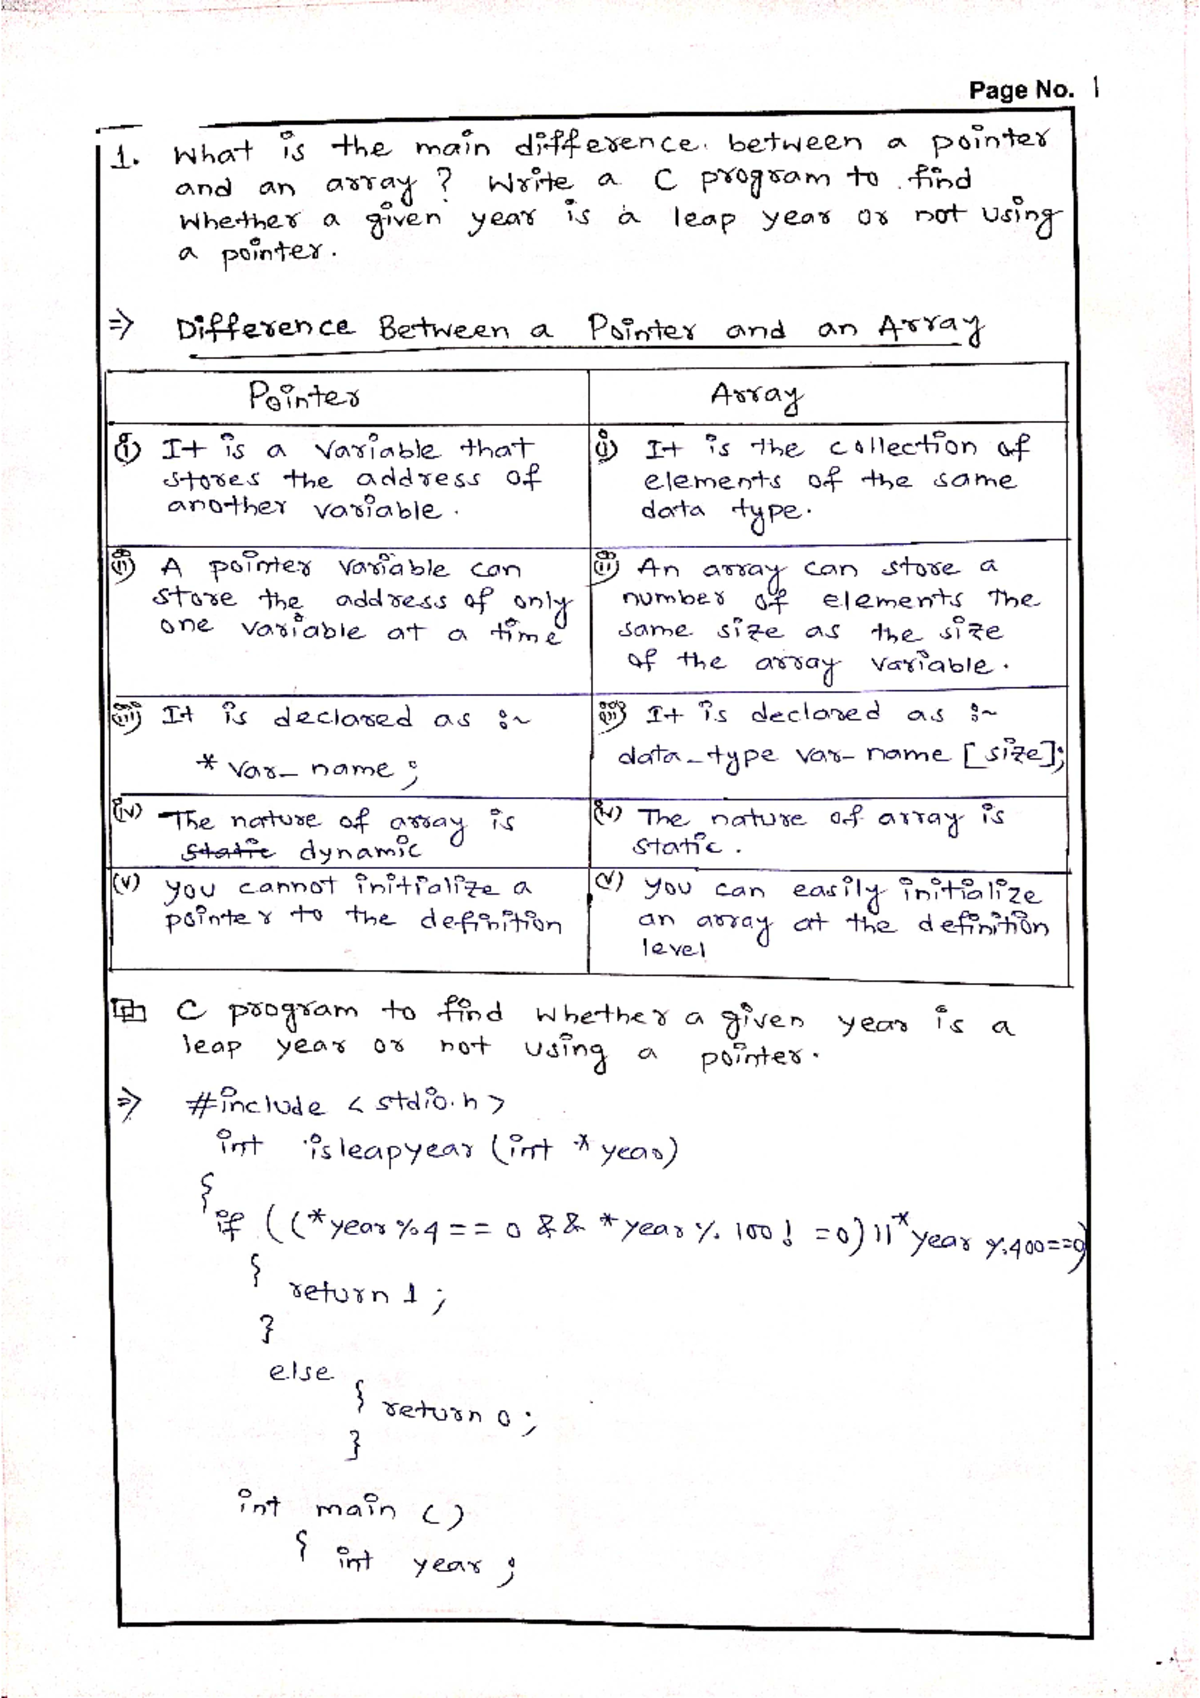 Page No. 1
1. What is the main difference between a pointer
and an array ? Write a C program to find
whether a given year is a leap year or not using
a pointer.
⇒ Difference Between a Pointer and an Array
Pointer
Array
(i) It is a variable that
stores the address of
another variable.
(i) It is the collection of
elements of the same
data type.
(ii) A pointer variable can
store the address of only
one variable at a time
(ii) An array can store a
number of elements the
same size as the size
of the array variable.
(iii) It is declared as :~
* var_name ;
(iii) It is declared as :~
data_type var_name [size];
(iv) The nature of array is
static dynamic
(iv) The nature of array is
static.
(v) you cannot initialize a
pointer to the definition
(v) you can easily initialize
an array at the definition
level
C program to find whether a given year is a
leap year or not using a pointer.
⇒ #include < stdio.h >
int isleapyear (int *year)
{
if ((*year %4 == 0 && *year % 100 ! =0) || *year %400==0)
{
return 1 ;
}
else
{ return 0 ;
}
int main ()
{ int year ;